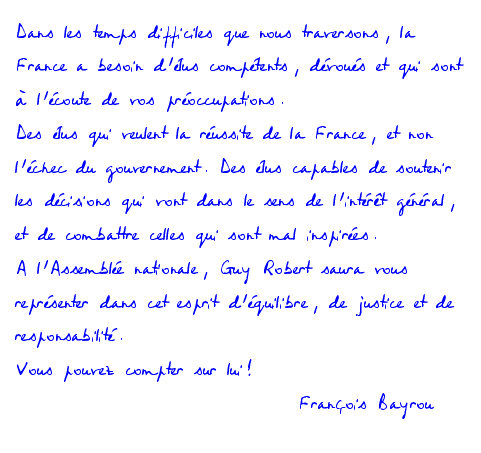 Dans les temps difficiles que nous traversons, la
France a besoin d'élus compétents, dévoués et qui sont
à l'écoute de vos préoccupations.
Des élus qui veulent la réussite de la France, et non
l'échec du gouvernement. Des élus capables de soutenir
les décisions qui vont dans le sens de l'intérêt général,
et de combattre celles qui sont mal inspirées.
A l'Assemblée nationale, Guy Robert saura vous
représenter dans cet esprit d'équilibre, de justice et de
responsabilité.
Vous pouvez compter sur lui!
François Bayrou